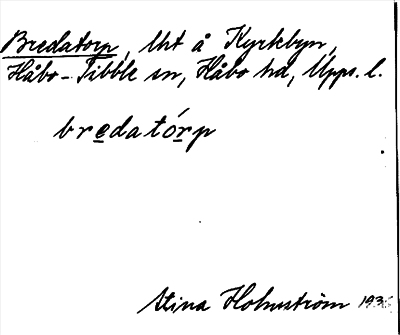 Bredatorp, lht å Kyrkbyn,
Håbo-Tibble sn, Håbo hd, Upps. l.
bredatórp
Stina Holmström 193